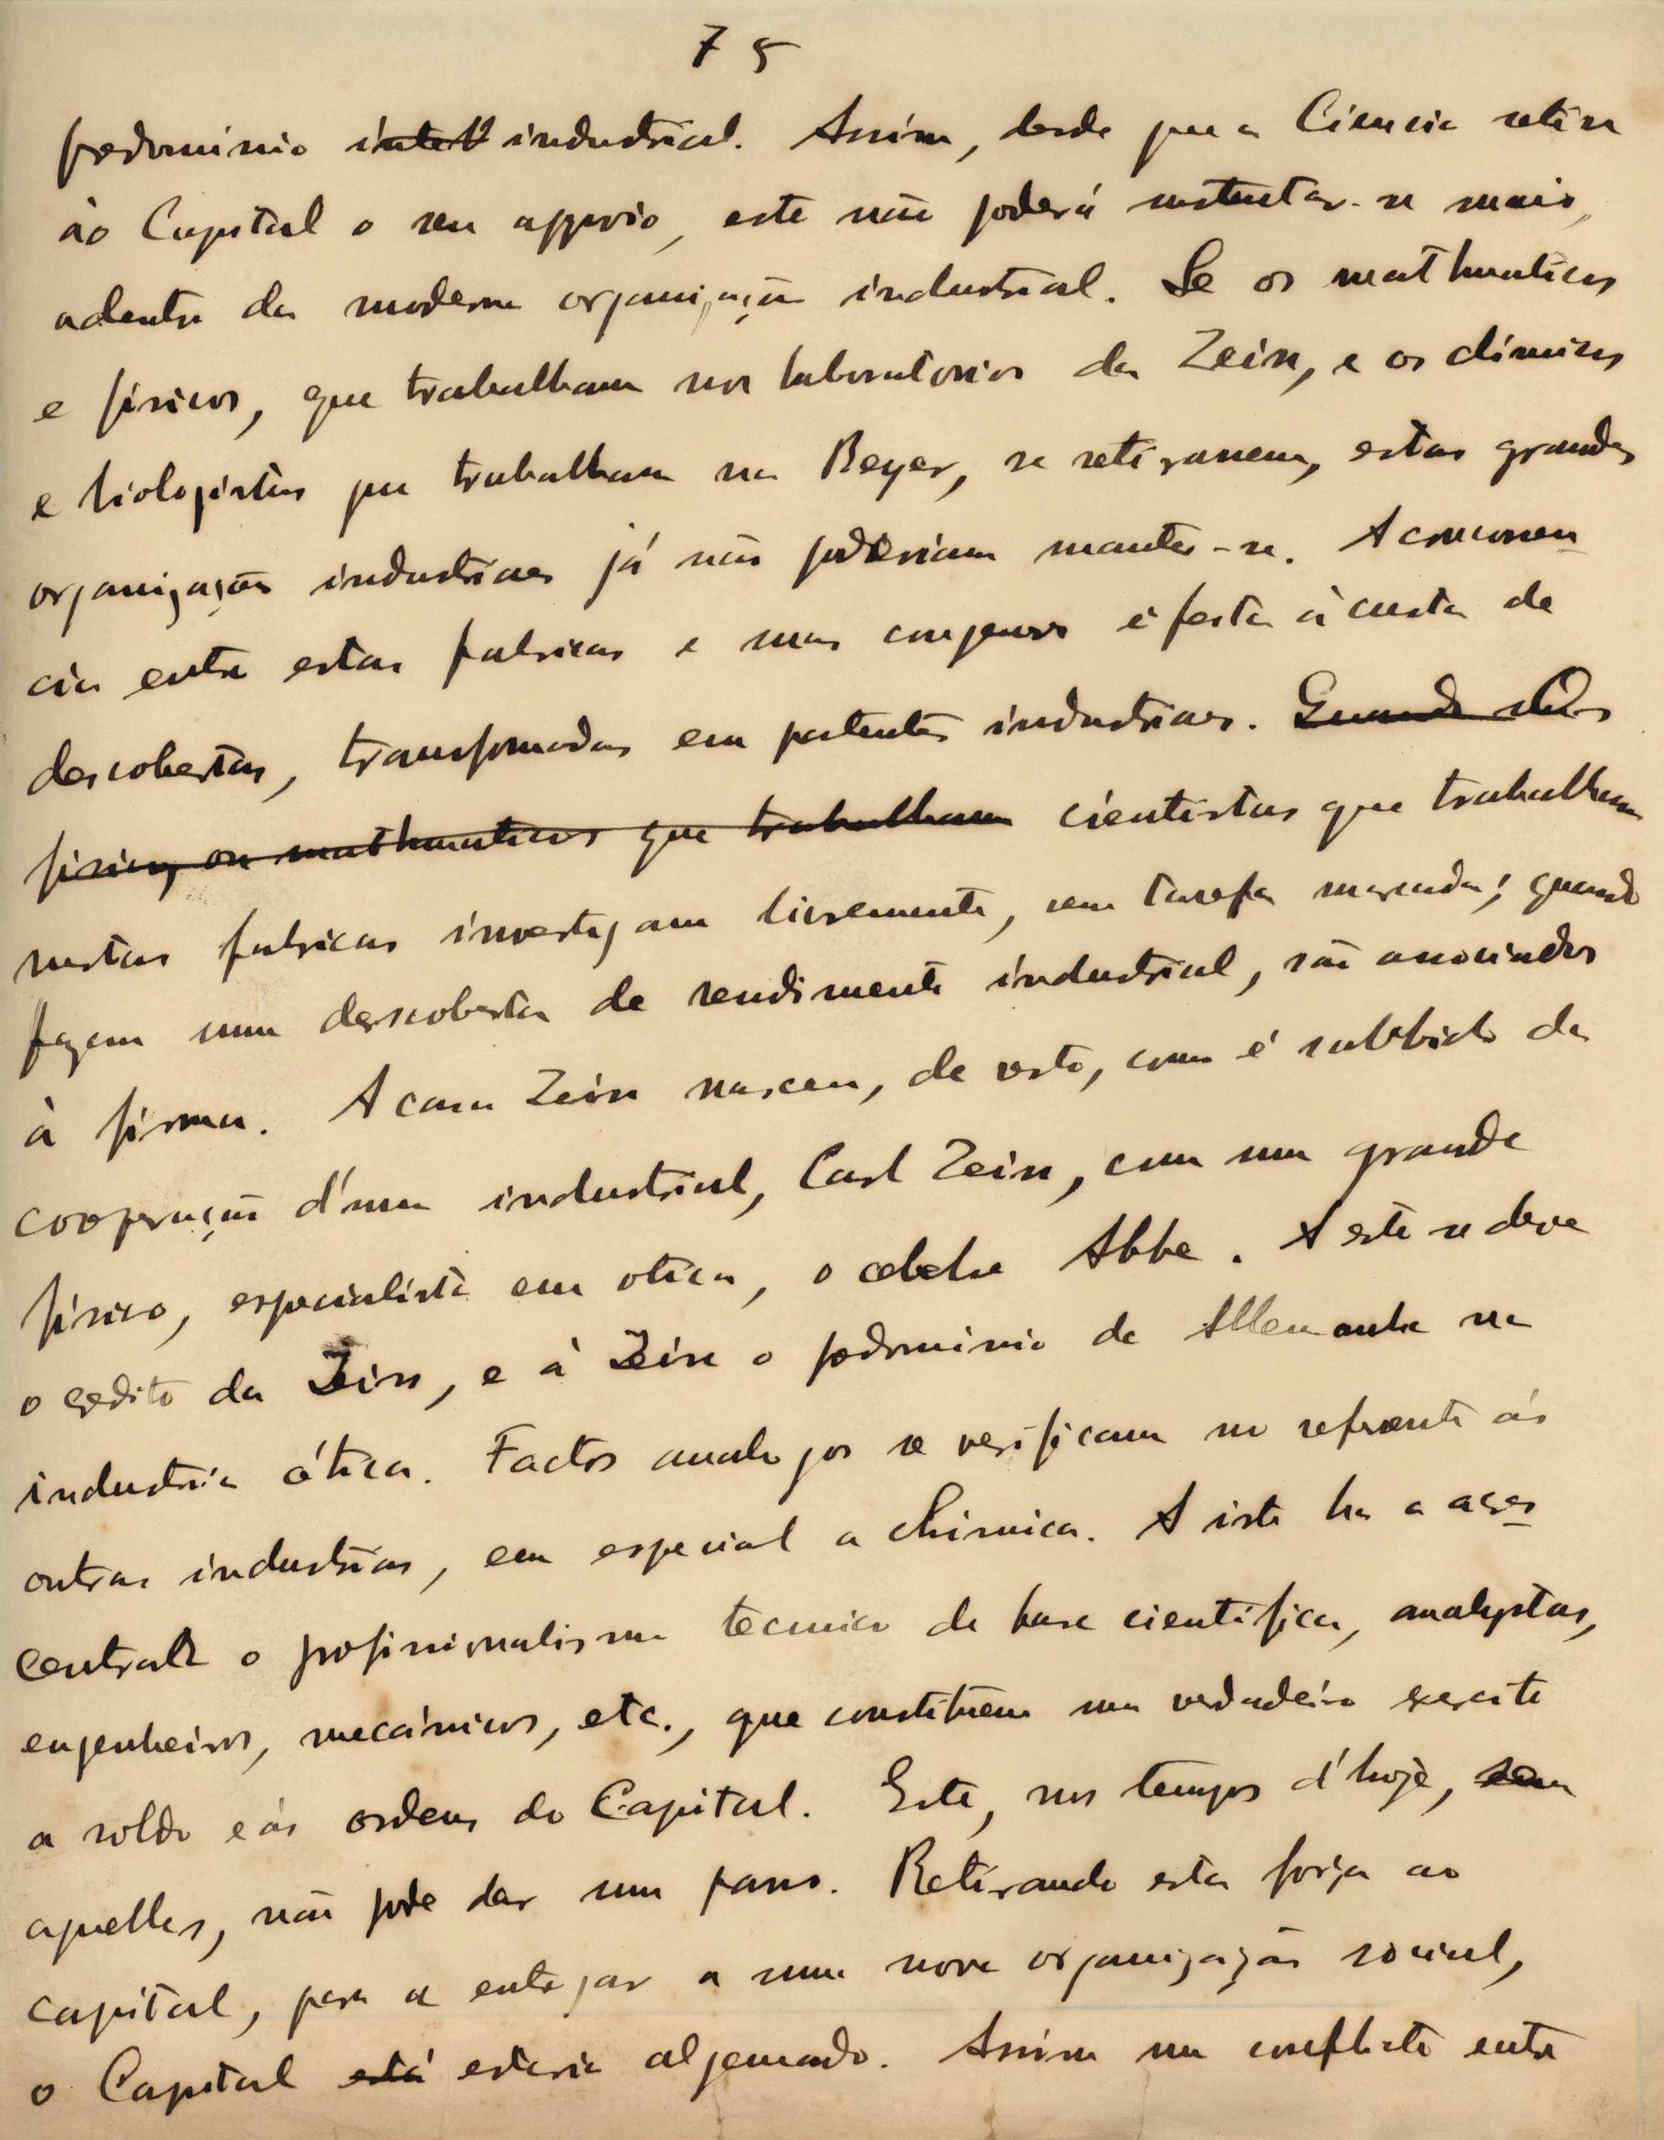 75
predominio intell industrial. Assim, desde que a Ciencia retire
ao Capital o seu appoio, este não poderá sustentar-se mais,
adentro da moderna organização industrial. Se os mathematicos
e fisicos, que trabalham nos laboratorios da Zeiss, e os chimicos
e biologistas que trabalham na Beyer, se retirassem, estas grandes
organizações industriaes já não poderiam manter-se. A concorren-
cia entre estas fabricas e suas congeneres é feita à custa de
descobertas, transformadas em patentes industriaes. Quando Os
fisicos, ou mathematicos que trabalham cientistas que trabalham
nestas fabricas investigam livremente, sem tarefa marcada; quando
fazem uma descoberta de rendimento industrial, são associados
à firma. A casa Zeiss nasceu, de resto, como é sabbido da
cooperação d'um industrial, Carl Zeiss, com um grande
fisico, especialista em otica, o celebre Abbe. A este se deve
o credito da Zeiss, e à Zeiss o predominio da Allemanha na
industria ótica. Factos analogos se verificam no referente ás
outras industrias, em especial a chimica. A isto ha a acres-
centar o profissionalismo tecnico de base cientifica, analystas,
engenheiros, mecánicos, etc., que constituem um verdadeiro exercito
a soldo e ás ordens do Capital. Este, nos tempos d'hoje, sem
aquelles, não pode dar um passo. Retirando esta força ao
capital, para a entregar a uma nova organização social,
o Capital está estaria algemado. Assim um conflicto entre